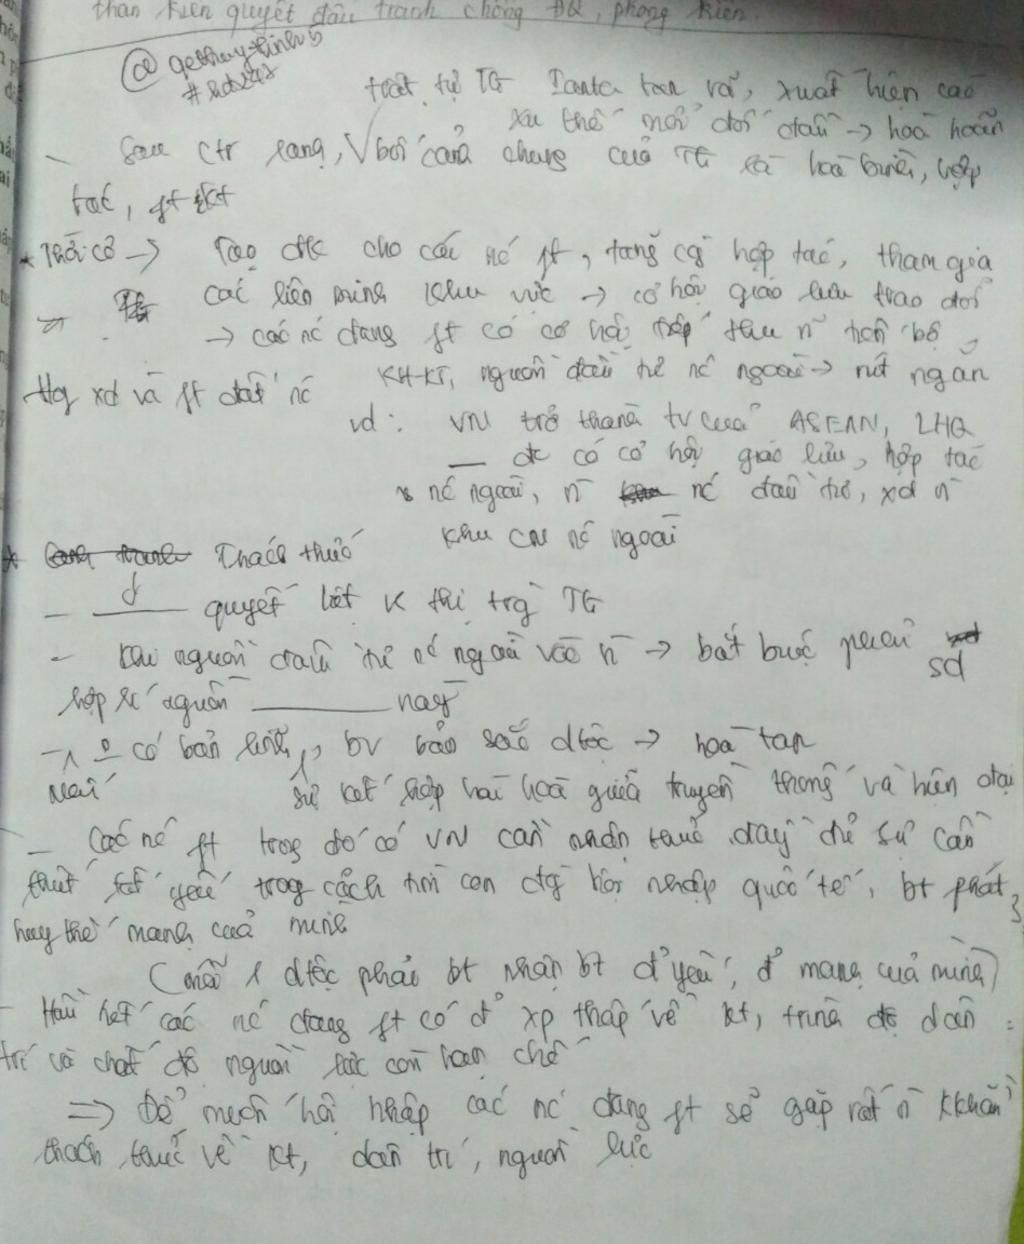 thần kiên quyết đấu tranh chống ĐQ, phong kiến.
trật tự TG Ianta tan rã, xuất hiện các
xu thế mới đối đầu → hoà hoãn
- Sau ctr lạnh, V bối cảnh chung của TG là hoà bình, hợp
tác, ft kt
* Thời cơ → Tạo đk cho các nc ft, tăng cg hợp tác, tham gia
các liên minh khu vực → cơ hội giao lưu trao đổi
→ các nc đang ft có cơ hội tiếp thu n tiến bộ
KH-KT, nguồn đầu tư nc ngoài → rút ngắn
tg xd và ft đất nc
vd: VN trở thành tv của ASEAN, LHQ
đc có cơ hội giao lưu, hợp tác
nc ngoài, n nc đầu tư, xd n
khu CN nc ngoài
* Thách thức
- quyết liệt k thị trg TG
- khi nguồn đầu tư nc ngoài vào n → bắt buộc phải sd
hợp lí nguồn này
- có bản lĩnh, bv bản sắc dtộc → hoà tan
sự kết hợp hài hoà giữa truyền thống và hiện đại
- Các nc ft trog đó có VN cần nhận thức đầy đủ sự cần
thiết tất yếu trog cách tìm con đg hội nhập quốc tế, bt phát
huy thế mạnh của mình
(mỗi 1 dtộc phải bt nhận bt đ' yếu, đ' mạnh của mình)
- Hầu hết các nc đang ft có đ' xp thấp về kt, trình độ dân
trí và chất độ nguồn lực còn hạn chế
=> Để muốn hội nhập các nc đang ft sẽ gặp rất n kkhăn
thách thức về kt, dân trí, nguồn lực